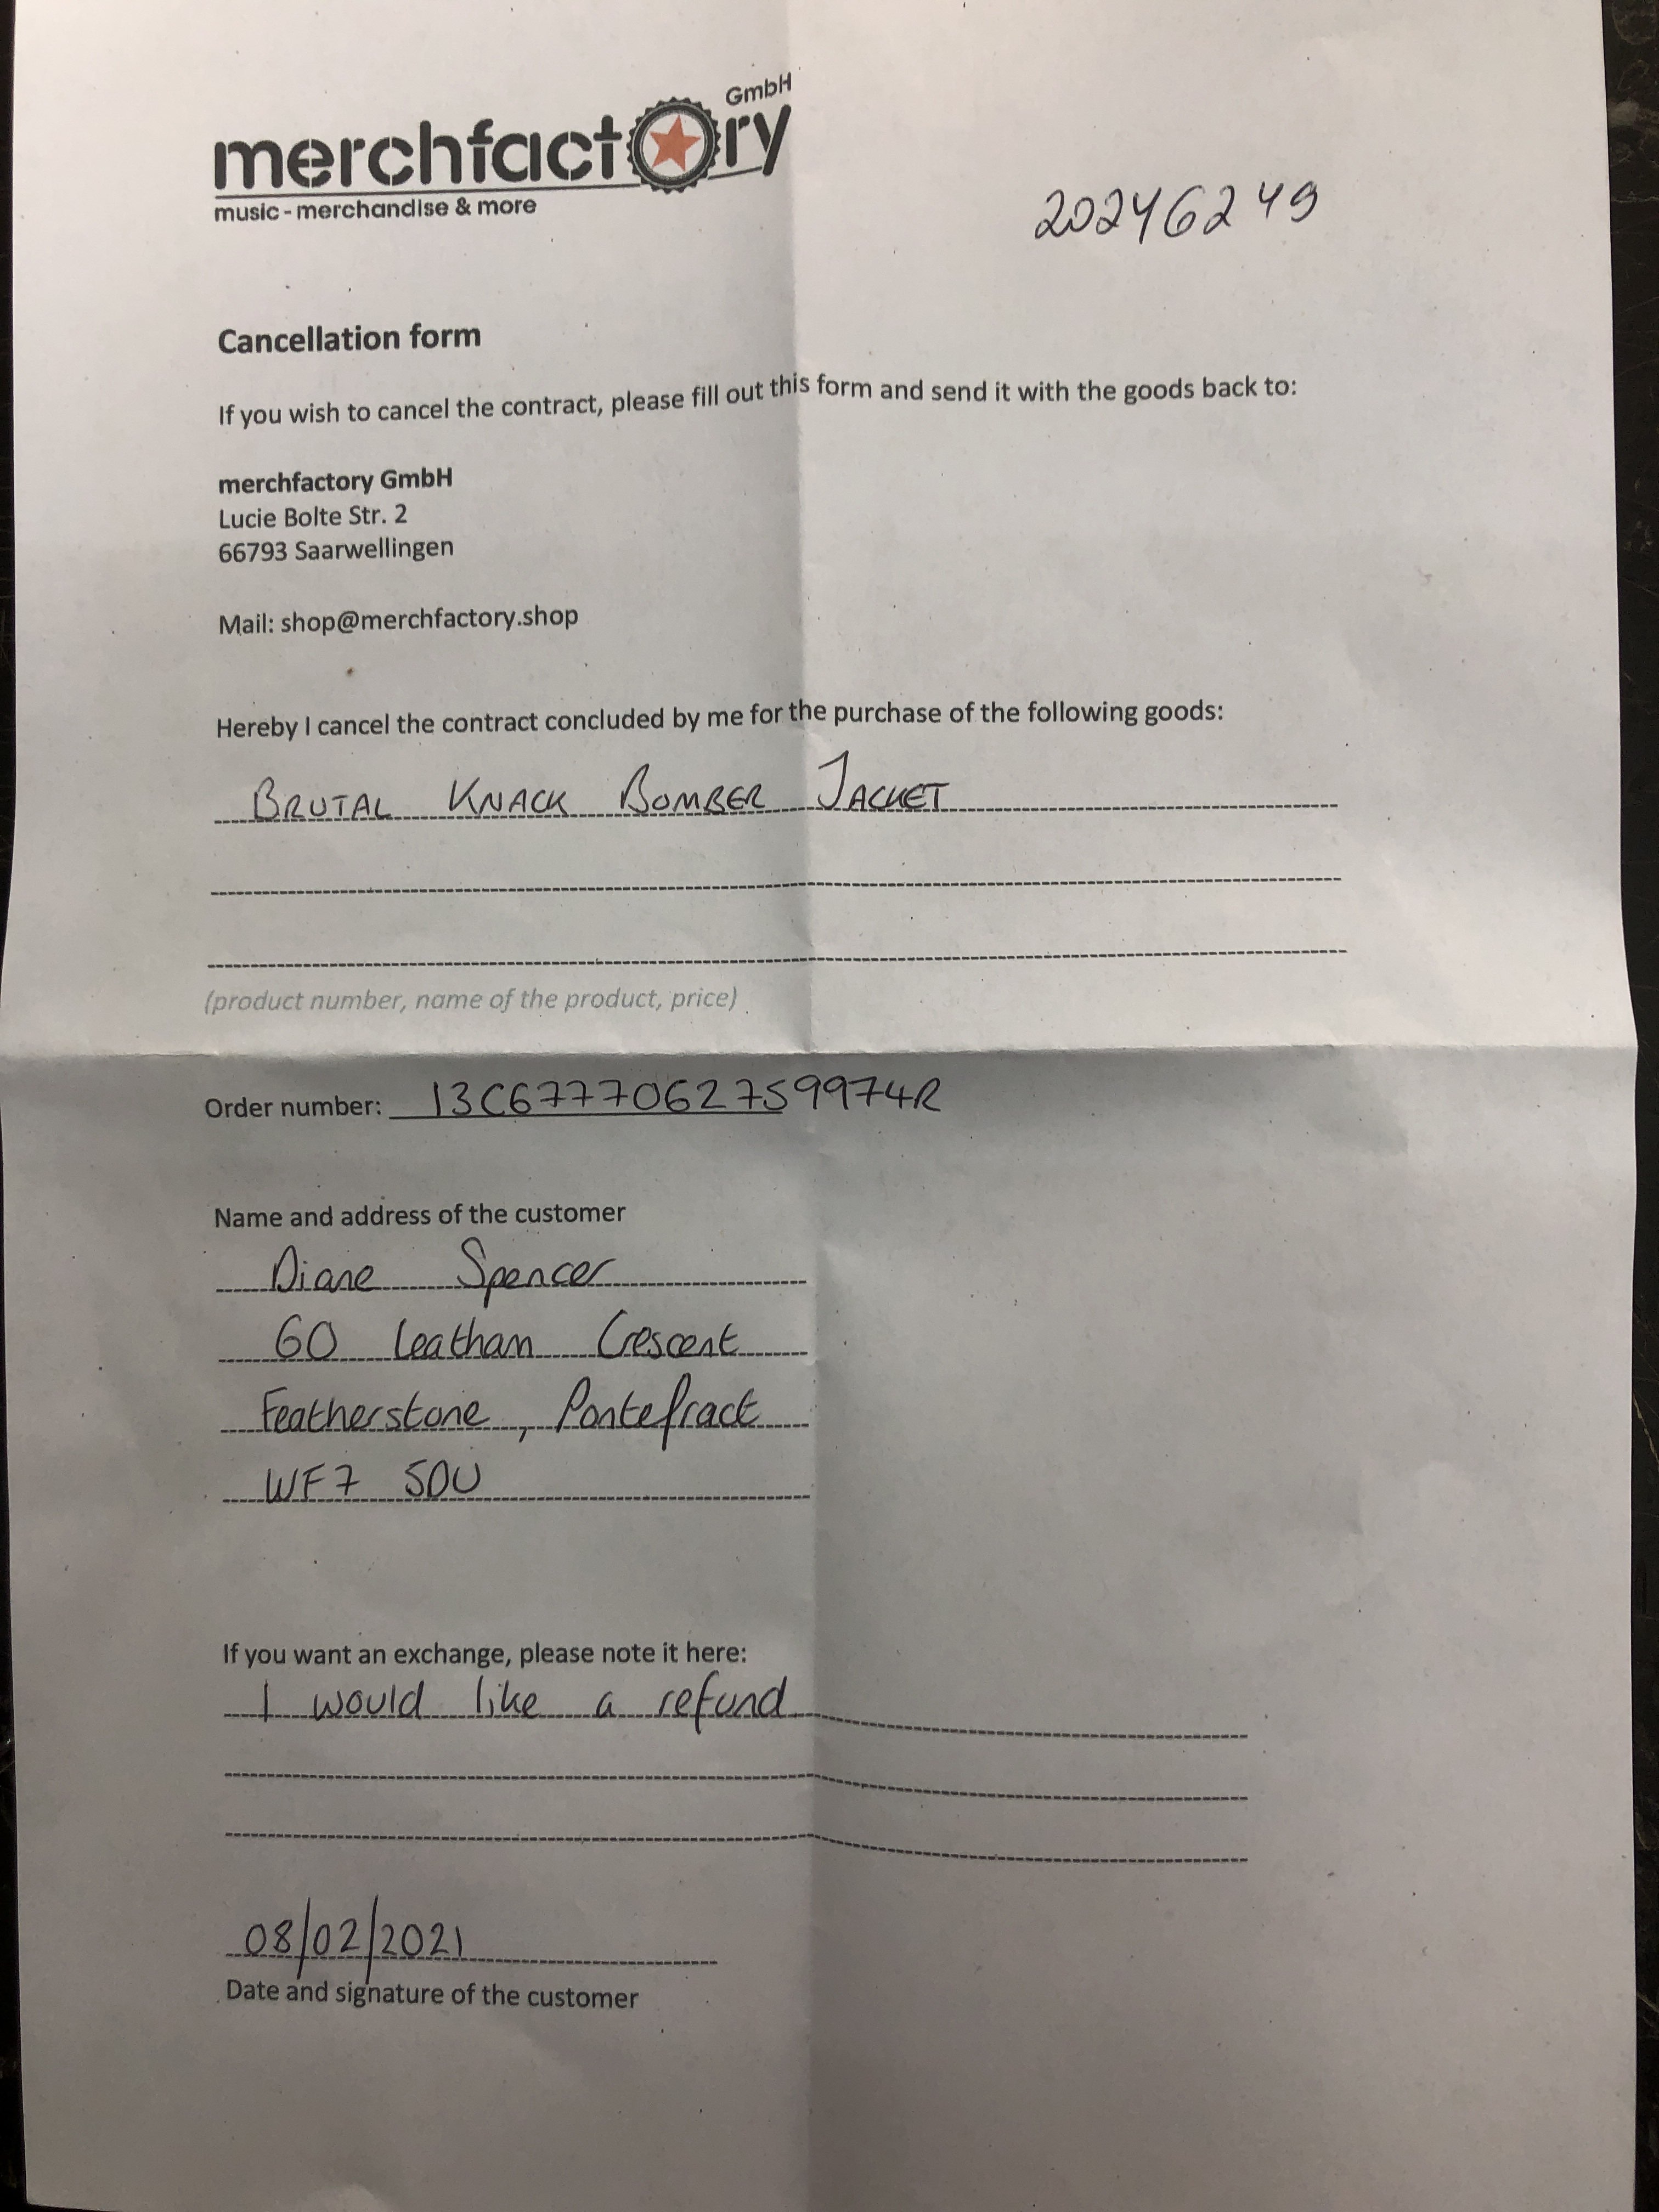 merchfactory GmbH
music - merchandise & more
20246249
Cancellation form
If you wish to cancel the contract, please fill out this form and send it with the goods back to:
merchfactory GmbH
Lucie Bolte Str. 2
66793 Saarwellingen
Mail: shop@merchfactory.shop
Hereby I cancel the contract concluded by me for the purchase of the following goods:
BRUTAL KNACK BOMBER JACKET
(product number, name of the product, price)
Order number: 13C67770627599974R
Name and address of the customer
Diane Spencer
60 Leatham Crescent
Featherstone, Pontefract
WF7 5DU
If you want an exchange, please note it here:
I would like a refund
08/02/2021
Date and signature of the customer